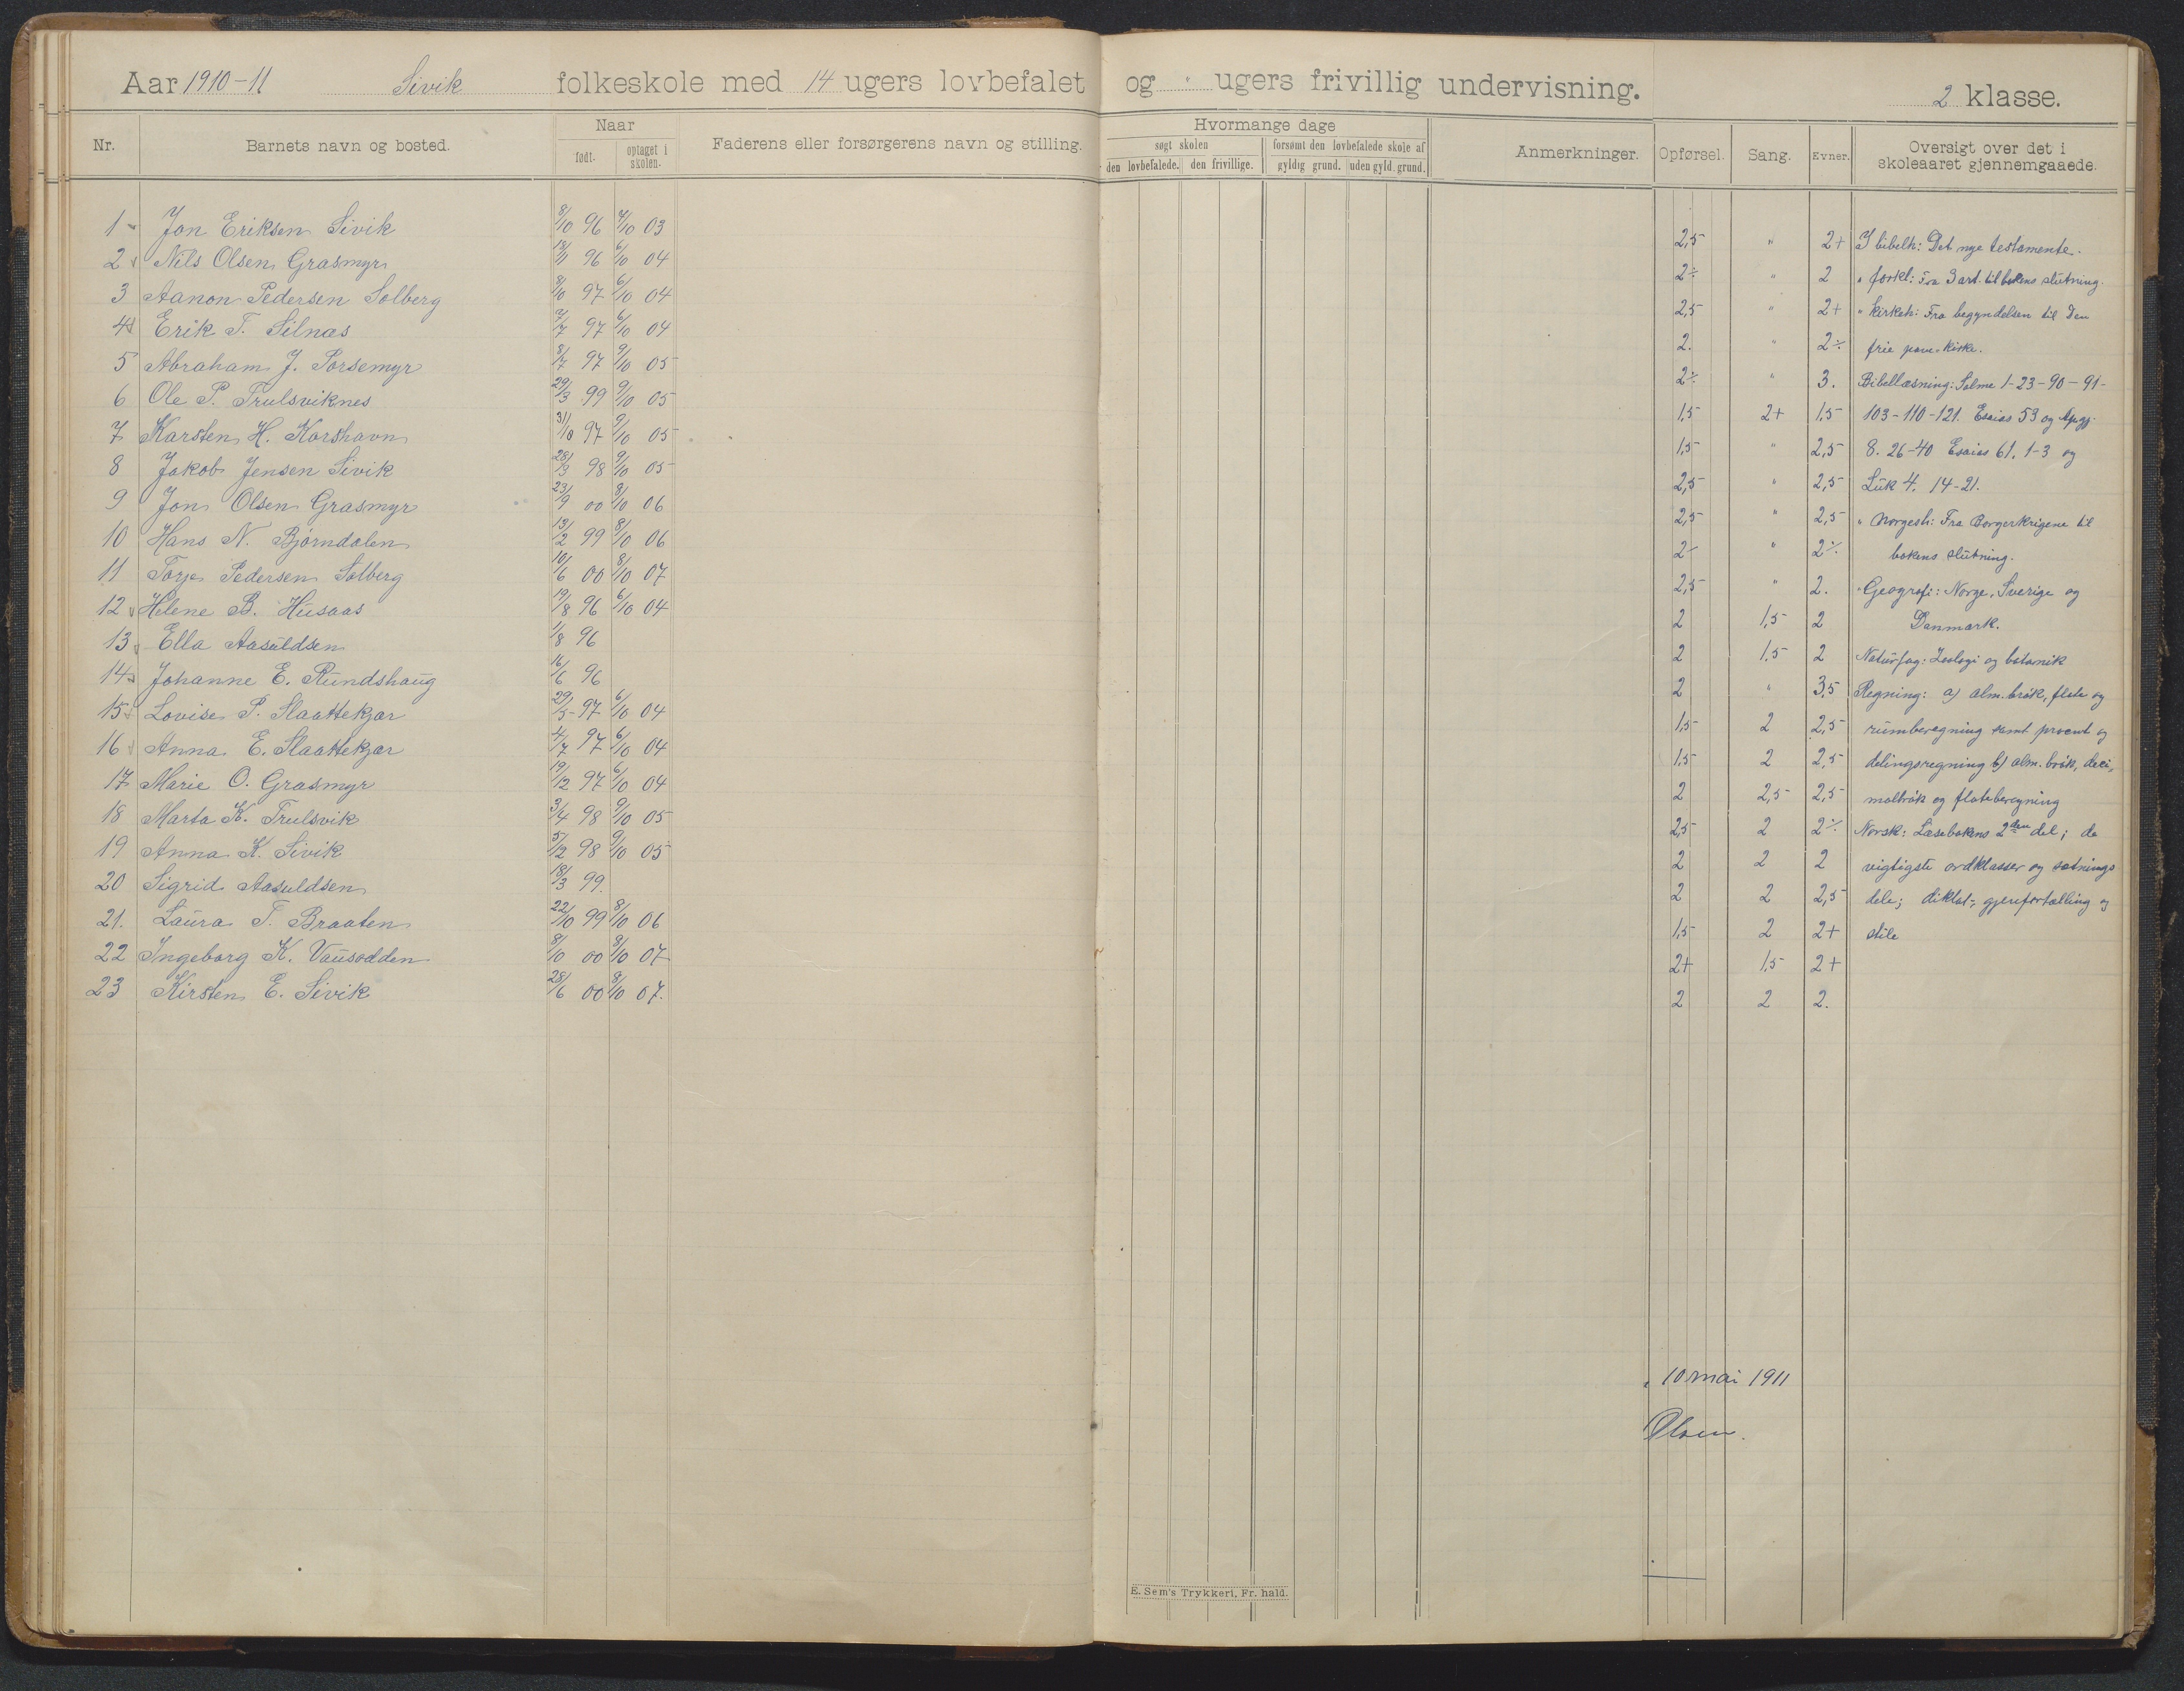 Aar 1910-11 Sivik folkeskole med 14 ugers lovbefalet og " ugers frivillig undervisning. 2 klasse.
Nr. Barnets navn og bosted. Naar født. optaget i skolen. Faderens eller forsørgerens navn og stilling. Hvormange dage søgt skolen den lovbefalede. den frivillige. forsømt den lovbefalede skole af gyldig grund. uden gyld. grund. Anmerkninger. Opførsel. Sang. Evner. Oversigt over det i skoleaaret gjennemgaaede.
1 Jon Eriksen Sivik 8/10 96 4/10 03 2,5 " 2+ I bibelh: Det nye testamente.
2 Nils Olsen Grasmyr 18/1 96 6/10 04 2÷ " 2 " forkl: Fra 3 art. til bokens slutning.
3 Aanon Pedersen Solberg 8/10 97 6/10 04 2,5 " 2+ " Kirkeh: Fra begyndelsen til den
4 Erik T. Silnas 2/7 97 6/10 04 2. " 2÷ frie kirke.
5 Abraham J. Porsemyr 8/7 97 9/10 05 2÷ " 3. Bibellæsning: Salme 1-23-90-91-
6 Ole P. Trulsviknes 29/3 99 9/10 05 1,5 2+ 1,5 103-110-121. Esaias 53 og Apgj.
7 Karsten H. Korshavn 31/10 97 9/10 05 1,5 " 2,5 8. 26-40 Esaias 61. 1-3 og
8 Jakob Jensen Sivik 28/3 98 9/10 05 2,5 " 2,5 Luk 4. 14-21.
9 Jon Olsen Grasmyr 23/9 00 8/10 06 2,5 " 2,5 " Norgesh: Fra Borgerkrigene til
10 Hans N. Bjørndalen 13/2 99 8/10 06 2- " 2÷ bokens slutning.
11 Torje Pedersen Solberg 10/6 00 8/10 07 2,5 " 2. " Geografi: Norge, Sverige og
12 Helene B. Husaas 19/8 96 6/10 04 2 1,5 2 Danmark.
13 Ella Aasuldsen 1/8 96 2 1,5 2 Naturfag: Zoologi og botanik
14 Johanne E. Rundshaug 16/6 96 2 " 3,5 Regning: a) alm. brøk, flate og
15 Lovise P. Slaattekjær 29/5 97 6/10 04 1,5 2 2,5 rumberegning samt procent og
16 Anna E. Slaattekjær 4/7 97 6/10 04 1,5 2 2,5 delingsregning b) alm. brøk, deci-
17 Marie O. Grasmyr 19/12 97 6/10 04 2 2,5 2,5 malbrøk og flateberegning
18 Marta K. Trulsvik 3/4 98 9/10 05 2,5 2 2÷ Norsk: Læsebokens 2den del; de
19 Anna K. Sivik 5/12 98 9/10 05 2 2 2 vigtigste ordklasser og sætnings
20 Sigrid Aasuldsen 18/3 99. 2 2 2,5 dele; diktat-, gjenfortælling og
21. Laura T. Braaten 22/10 99 8/10 06 1,5 2 2+ stile
22 Ingeborg K. Vausodden 8/10 00 8/10 07 2+ 1,5 2+
23 Kirsten E. Sivik 28/6 00 8/10 07. 2 2 2.
10 mai 1911
Olsen.
E. Sem's Trykkeri, Fr. hald.